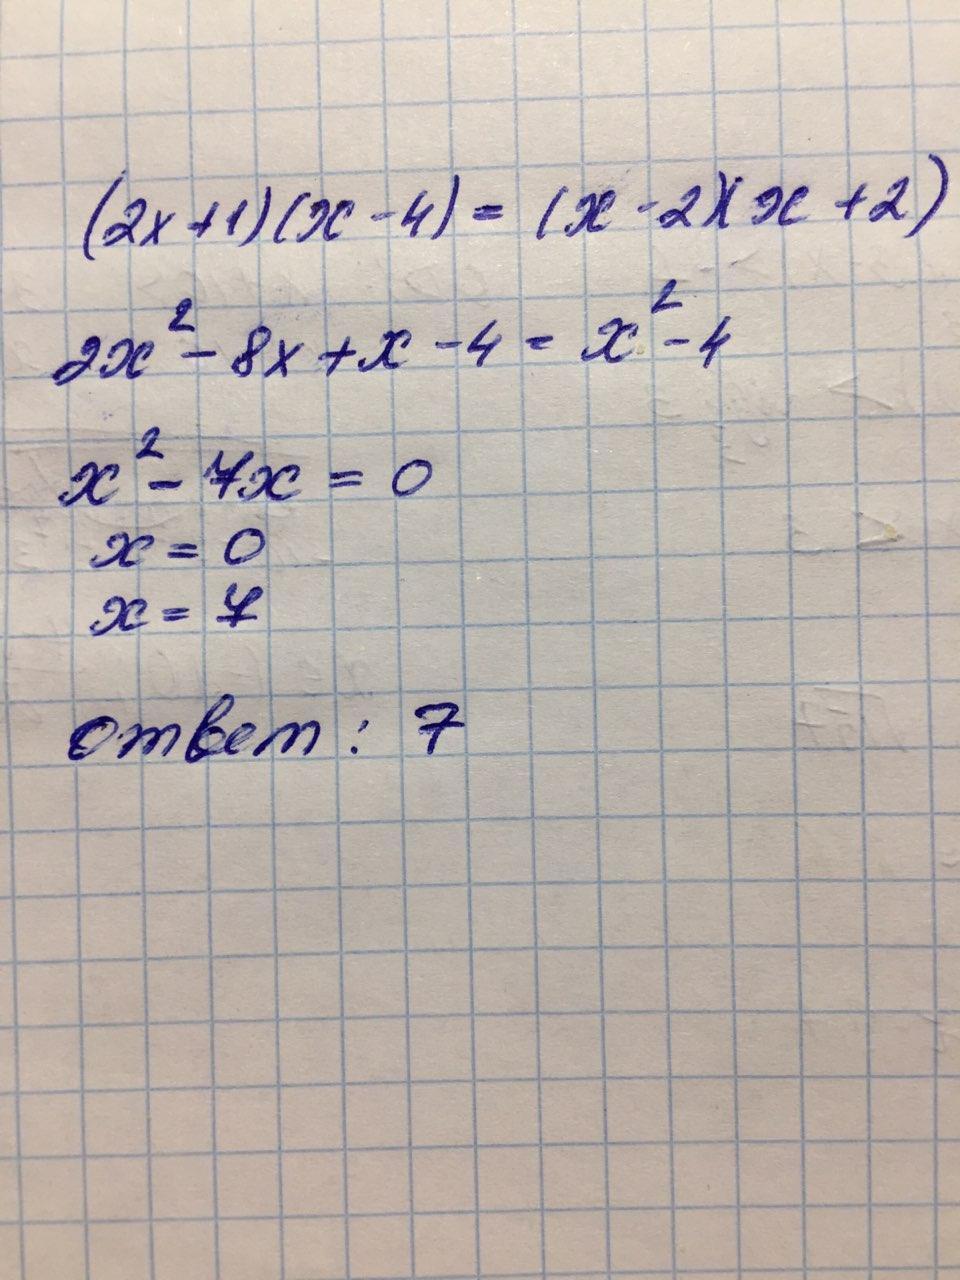 (2x+1)(x-4)=(x-2)(x+2)
2x²-8x+x-4=x²-4
x²-7x=0
x=0
x=7
ответ: 7